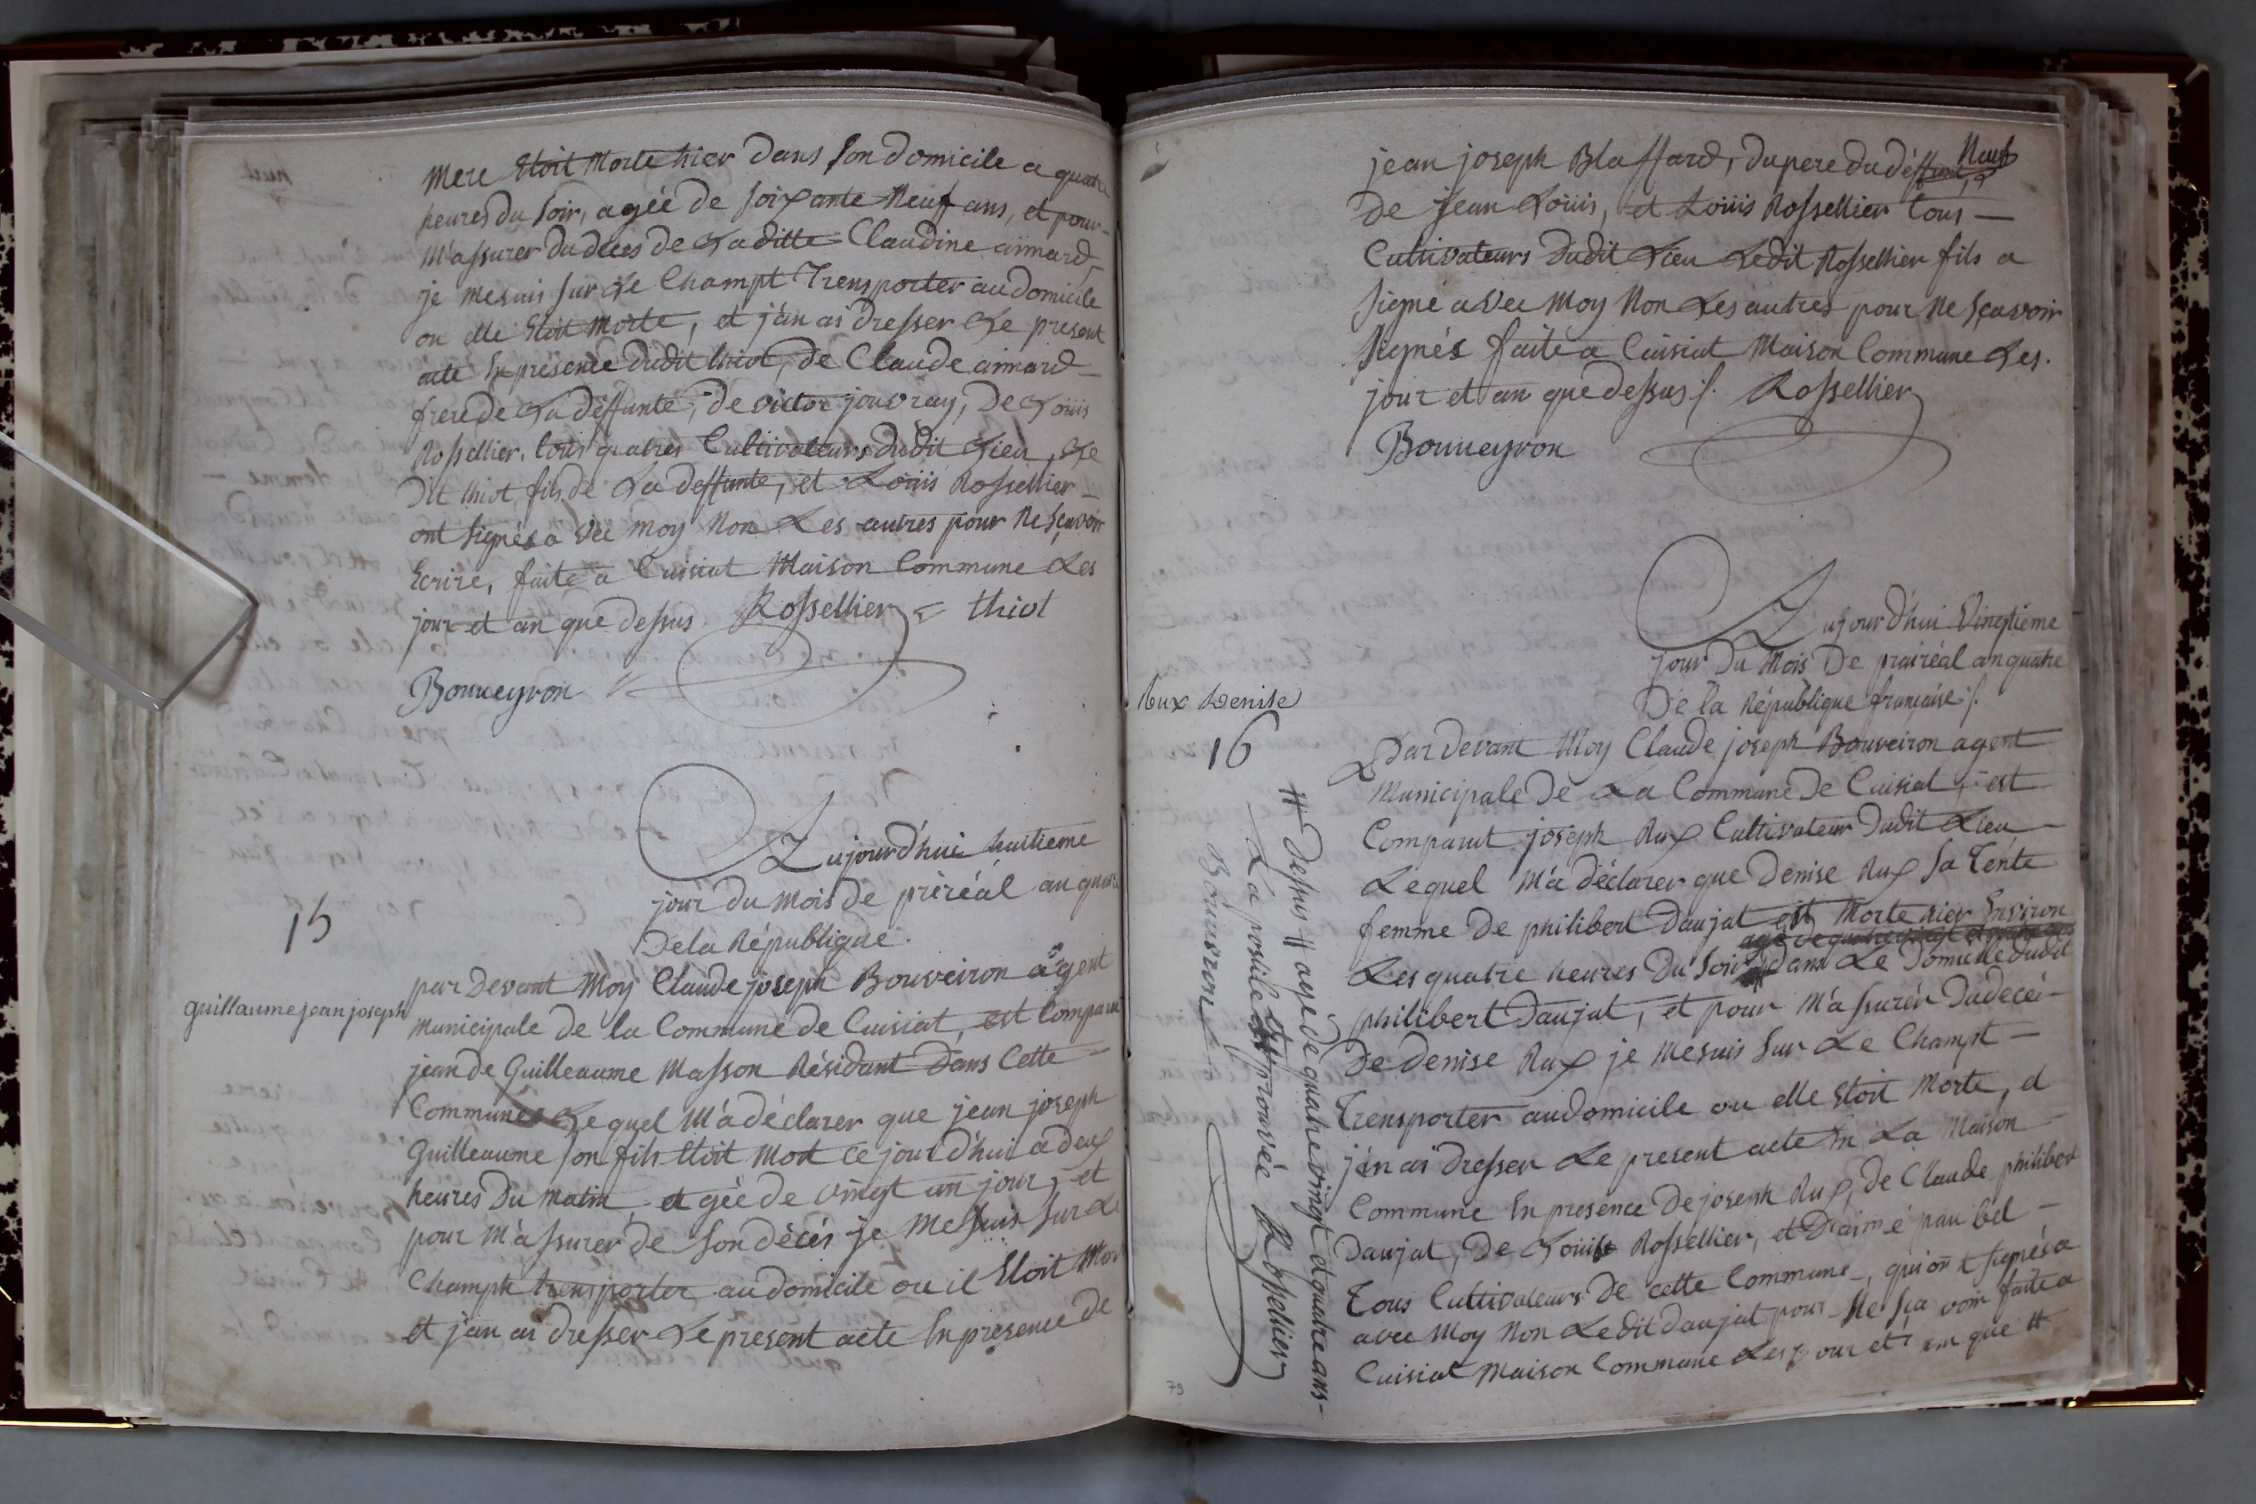 Mere Etoit Morte hier dans son domicile a quatre
heures du soir, agée de soixante Neuf ans, et pour
M'assurer du deces de La ditte Claudine aimard
je me suis sur Le Champt Trensporter au domicile
ou elle Etoit Morte, et j'an ai dresser Le present
acte En presence dudit thiot, de Claude aimard
frere de La deffunte, de victor jouvray, de Loüis
Rossellier, tous quatres Cultivateurs dudit Lieu, Le
Dit thiot fils de La deffunte, et Loüis Rossellier
ont signés a vec moy Non Les autres pour Ne sçavoir
Ecrire, faite a Cuisiat Maison Commune Les
jour et an que dessus. Rossellier thiot
Bouveyron
Aujourd'hui huitieme
jour du mois de préréal an quatre
De la République.
15
guillaume jean joseph
par Devant Moy Claude joseph Bouveiron agent
Municipale de la Commune de Cuisiat, est Comparut
jean de Guilleaume Masson Résidant Dans Cette
Commune Lequel M'a déclarer que jean joseph
Guilleaume son fils Etoit Mort ce jour d'hui a deux
heures Du matin, agée de vingt un jour, et
pour M'assurér de son décés je me suis sur Le
Champt trensporter au domicile ou il Etoit Mort
et j'an ai dresser Le present acte En presence de
jean joseph Blaffard, du pere du déffunt, Neuf
de jean Loüis, et Loüis Rossellier tous
Cultivateurs dudit Lieu Ledit Rossellier fils a
signé avec Moy Non Les autres pour Ne sçavoir
signés faite a Cuisiat Maison Commune Les
jour et an que dessus ./. Rossellier
Bouveyron
Aujourd'hui Vingtieme
jour Du Mois De prairéal an quatre
De la République française ./.
Rux Denise
16
Par devant Moy Claude joseph Bouveiron agent
Municipale de La Commune De Cuisiat, est
Comparut joseph Rux Cultivateur Dudit Lieu
Lequel M'a déclarer que Denise Rux sa Tente
femme de philibert Daujat est Morte hier Environ
Les quatre heures Du soir dans Le Domicille dudit
philibert Daujat, et pour M'assurér Du decéé
De denise Rux je me suis sur Le Champt
Trensporter au domicile ou elle Etoit Morte, et
j'an ai Dresser Le present acte En La Maison
Commune En presence De joseph Rux, de Claude philibert
Daujat, De Loüis Rossellier, et D'aimé paubel
Tous Cultivateurs De cette Commune, qui ont signés a
avec Moy Non Ledit Daujat pour Ne sça voir faite a
Cuisiat Maison Commune Les jour et an que #
# Dessus # agé de quatre vingt et quatre ans
La postile approuvée Rossellier
Bouveiron
79